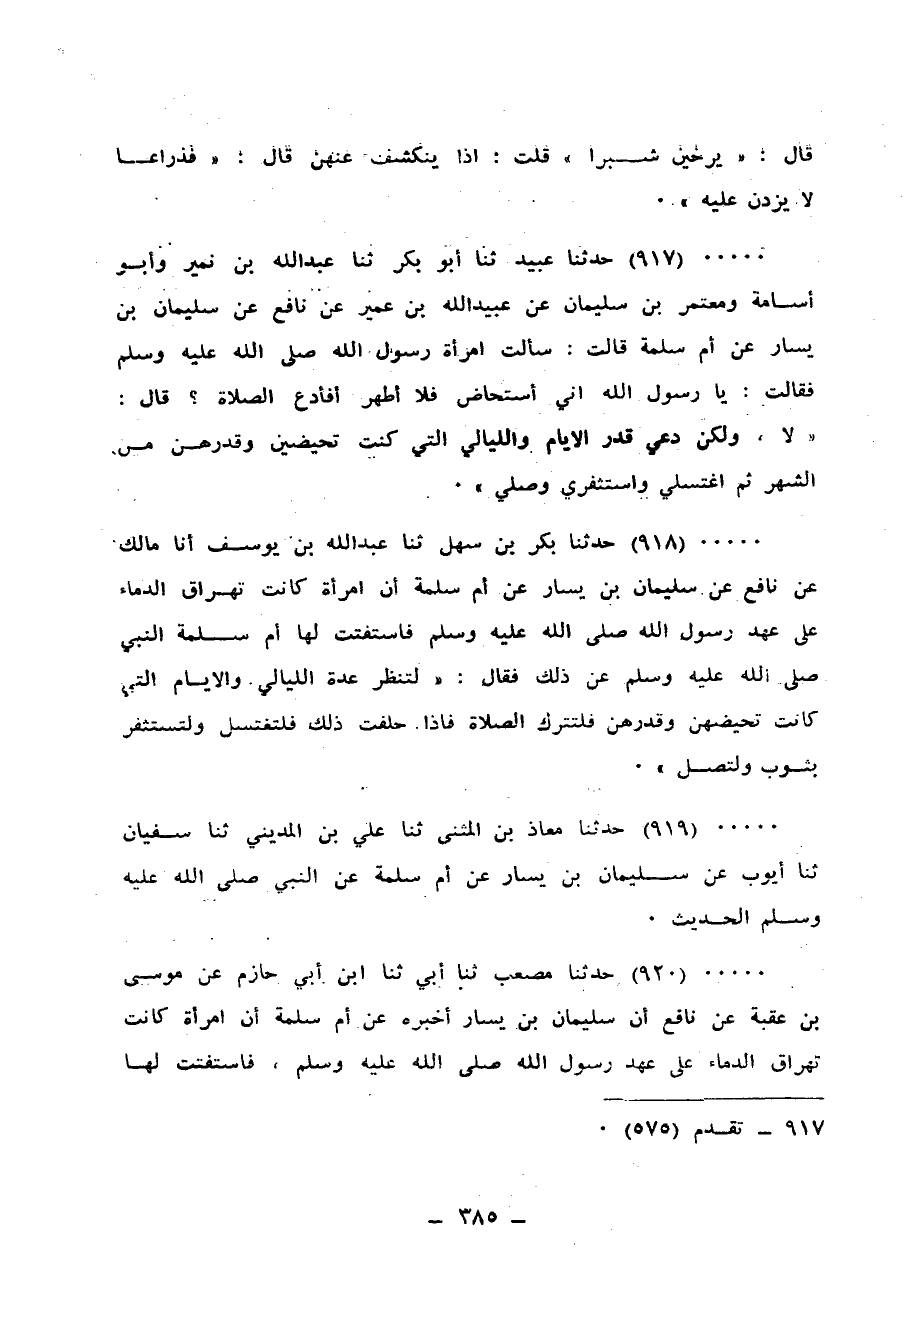 قال : « يرخين شـــبرا » قلت : اذا ينكشف عنهن قال : « فذراعـــا
لا يزدن عليه » ٠
٠٠٠٠٠ (٩١٧) حدثنا عبيد ثنا أبو بكر ثنا عبدالله بن نمير وأبــو
أســامة ومعتمر بن سليمان عن عبيدالله بن عمير عن نافع عن سليمان بن
يسار عن أم سلمة قالت : سألت امرأة رسول الله صلى الله عليه وسلم
فقالت : يا رسول الله اني أستحاض فلا أطهر أفأدع الصلاة ؟ قال :
« لا ، ولكن دعي قدر الايام والليالي التي كنت تحيضين وقدرهـن مـن
الشهر ثم اغتسلي واستثفري وصلي » ٠
٠٠٠٠٠ (٩١٨) حدثنا بكر بن سهل ثنا عبدالله بن يوسـف أنا مالك
عن نافع عن سليمان بن يسار عن أم سلمة أن امرأة كانت تهـراق الدماء
على عهد رسول الله صلى الله عليه وسلم فاستفتت لها أم ســلمة النبي
صلى الله عليه وسلم عن ذلك فقال : « لتنظر عدة الليالي والايـام التي
كانت تحيضهن وقدرهن فلتترك الصلاة فاذا حلفت ذلك فلتغتسل ولتستثفر
بثـوب ولتصــل » ٠
٠٠٠٠٠ (٩١٩) حدثنا معاذ بن المثنى ثنا علي بن المديني ثنا سـفيان
ثنا أيوب عن ســليمان بن يسار عن أم سلمة عن النبي صلى الله عليه
وسـلم الحـديث ٠
٠٠٠٠٠ (٩٢٠) حدثنا مصعب ثنا أبي ثنا ابن أبي حازم عن موسـى
بن عقبة عن نافع أن سليمان بن يسار أخبره عن أم سلمة أن امرأة كانت
تهراق الدماء على عهد رسول الله صلى الله عليه وسلم ، فاستفتت لهـا
٩١٧ ــ تقـدم (٥٧٥) ٠
ــ ٣٨٥ ــ